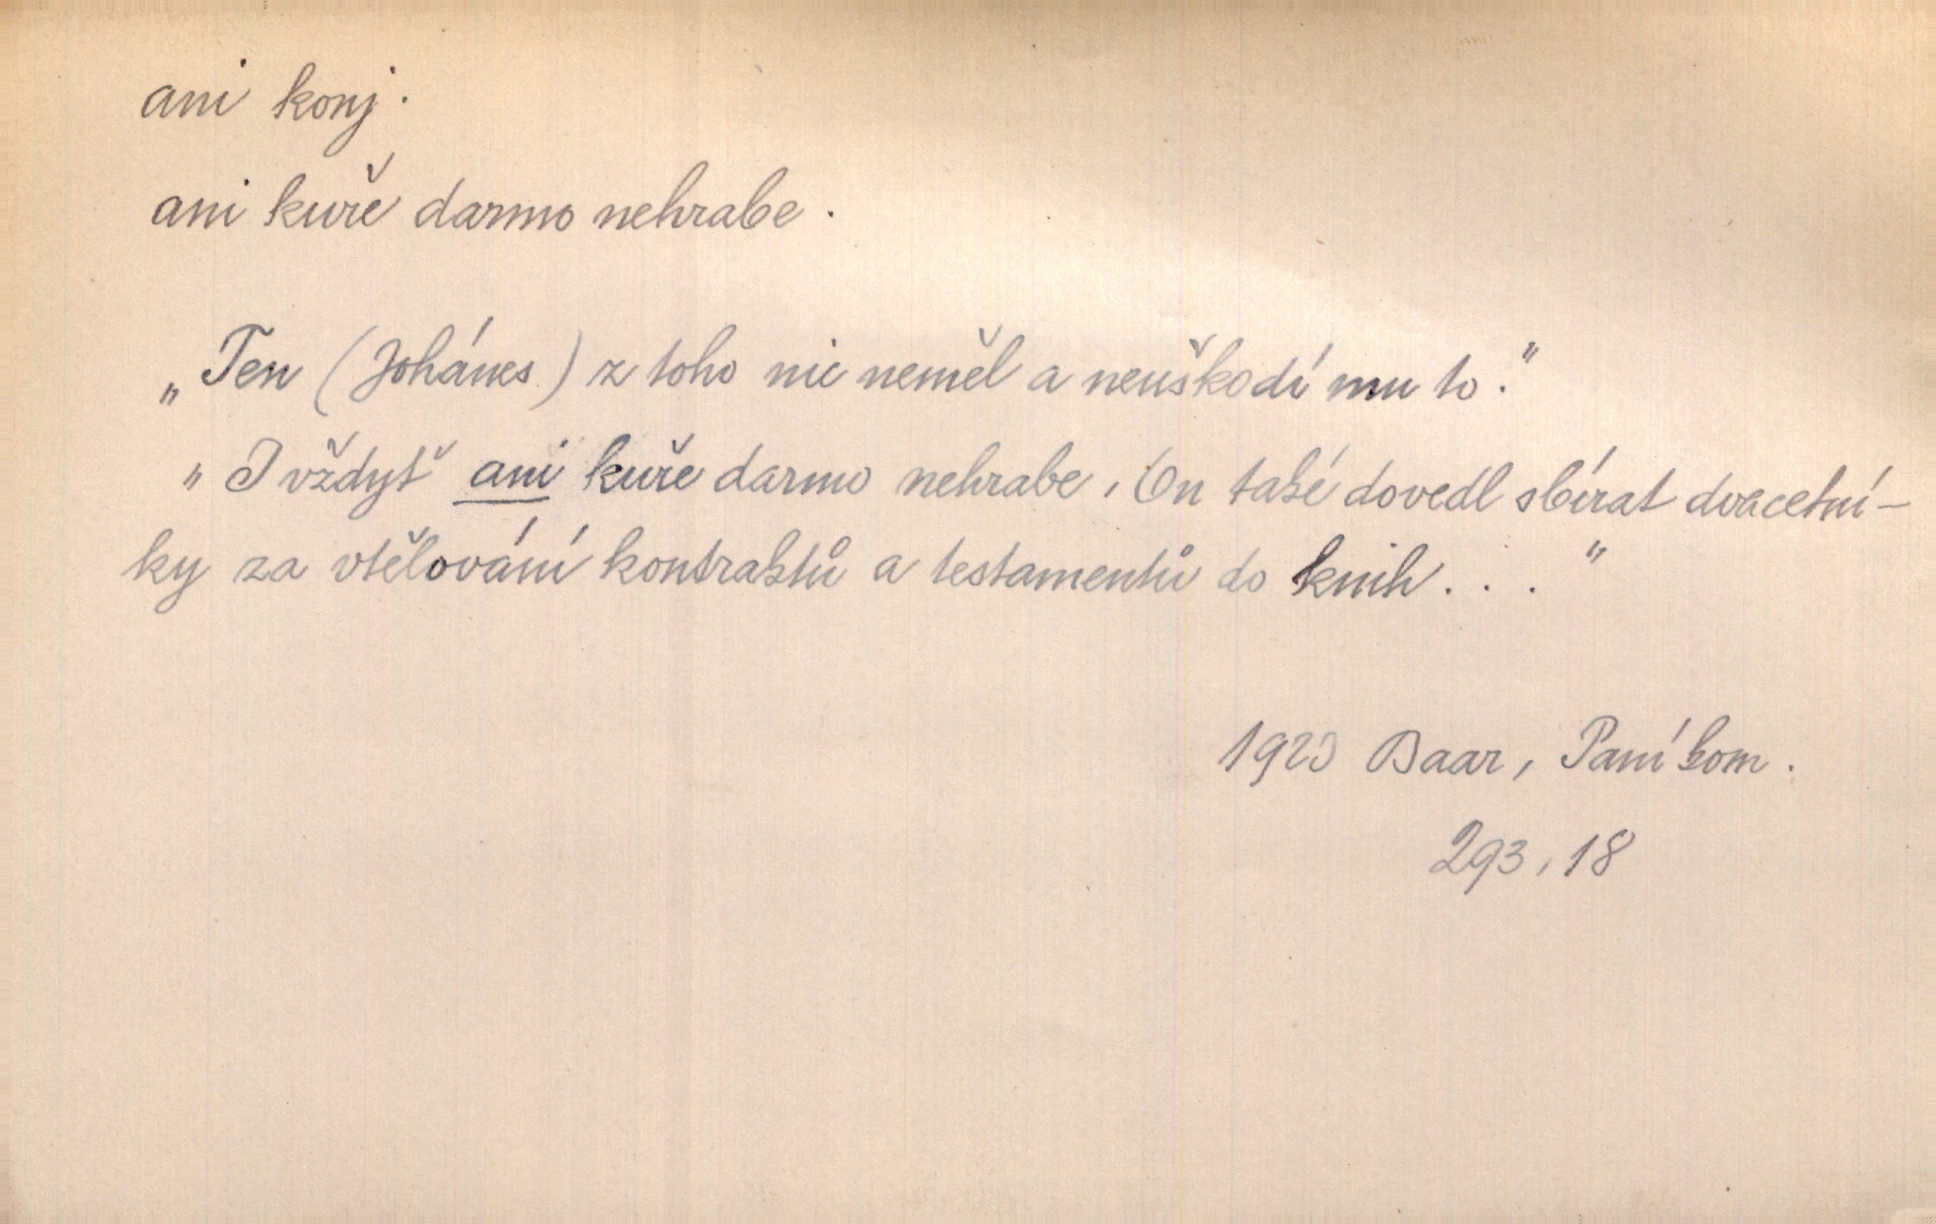 ani konj.
ani kuře darmo nehrabe.
„Ten (Johánes) z toho nic neměl a neuškodí mu to."
„I vždyť ani kuře darmo nehrabe, On také dovedl sbírat dvacetní-
ky za vtělování kontraktů a testamentů do knih..."
1923 Baar, Paní kom.
293, 18